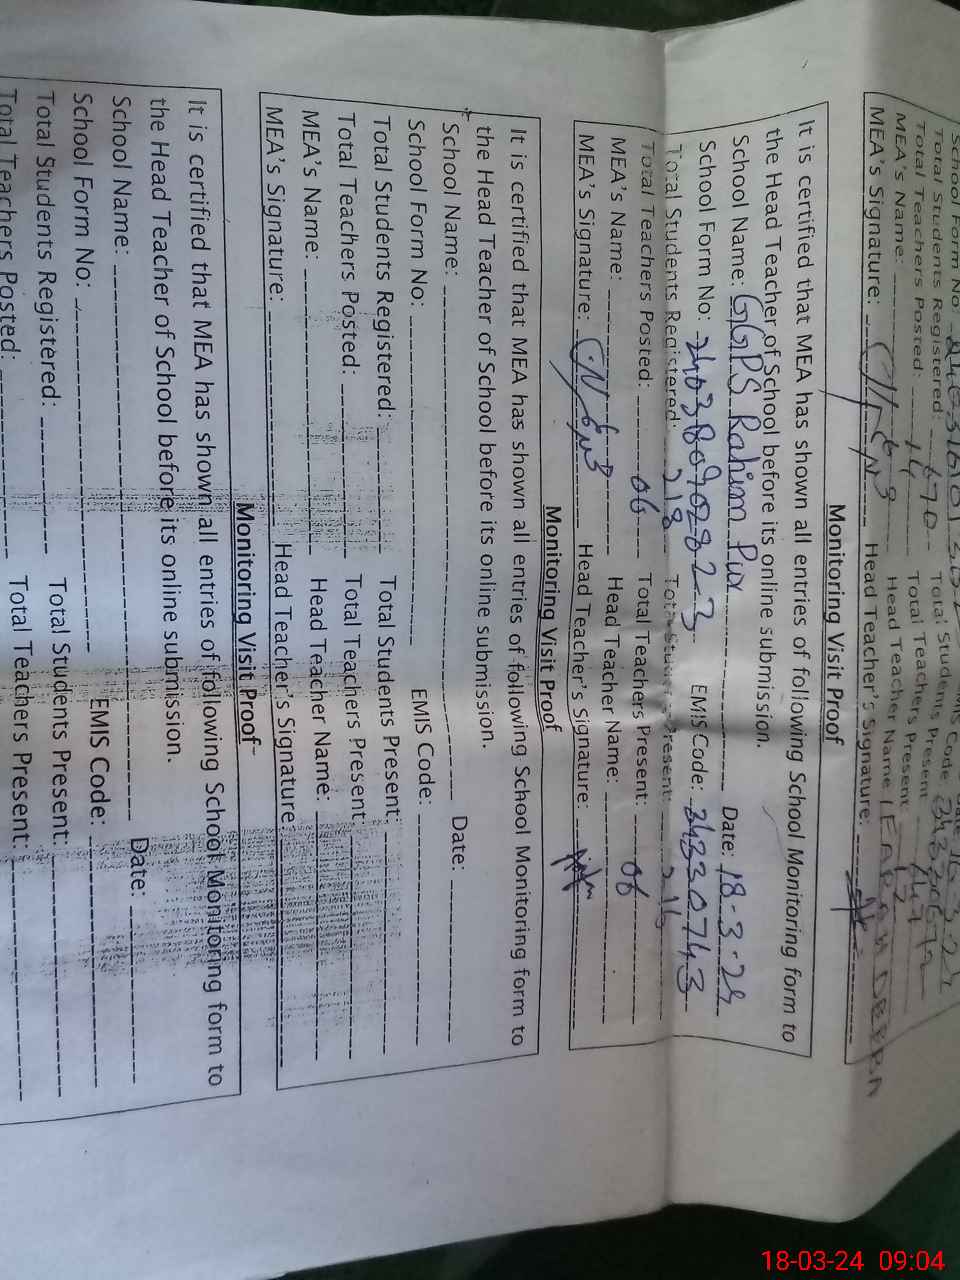 School Form No:
Total Students Registered: 670 Total Students Present:
Total Teachers Posted: 14 Total Teachers Present: 12
MEA's Name: Head Teacher Name:
MEA's Signature: Head Teacher's Signature:
Monitoring Visit Proof
It is certified that MEA has shown all entries of following School Monitoring form to
the Head Teacher of School before its online submission.
School Name: GGPS Rahim Pur Date: 18-3-24
School Form No: EMIS Code: 34330743
Total Students Registered: 218 Total Students Present: 216
Total Teachers Posted: 06 Total Teachers Present: 06
MEA's Name: Head Teacher Name:
MEA's Signature: Head Teacher's Signature:
Monitoring Visit Proof
It is certified that MEA has shown all entries of following School Monitoring form to
the Head Teacher of School before its online submission.
School Name: Date:
School Form No: EMIS Code:
Total Students Registered: Total Students Present:
Total Teachers Posted: Total Teachers Present:
MEA's Name: Head Teacher Name:
MEA's Signature: Head Teacher's Signature:
Monitoring Visit Proof
It is certified that MEA has shown all entries of following School Monitoring form to
the Head Teacher of School before its online submission.
School Name: Date:
School Form No: EMIS Code:
Total Students Registered: Total Students Present:
Total Teachers Posted: Total Teachers Present:
18-03-24 09:04